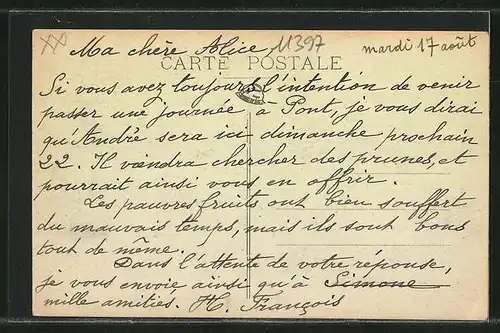 Ma chère Alice, 11397
mardi 17 août
CARTE POSTALE
Si vous avez toujours l'intention de venir
passer une journée à Pont, je vous dirai
qu'André sera ici dimanche prochain
22. Il viendra chercher des prunes, et
pourrait ainsi vous en offrir.
Les pauvres fruits ont bien souffert
du mauvais temps, mais ils sont bons
tout de même.
Dans l'attente de votre réponse,
je vous envoie ainsi qu'à Simone
mille amitiés. H. François